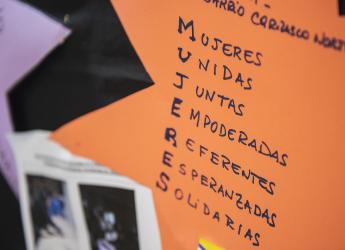 BARRIO CARRASCO NORT
MUJERES
UNIDAS
JUNTAS
EMPODERADAS
REFERENTES
ESPERANZADAS
SOLIDARIAS